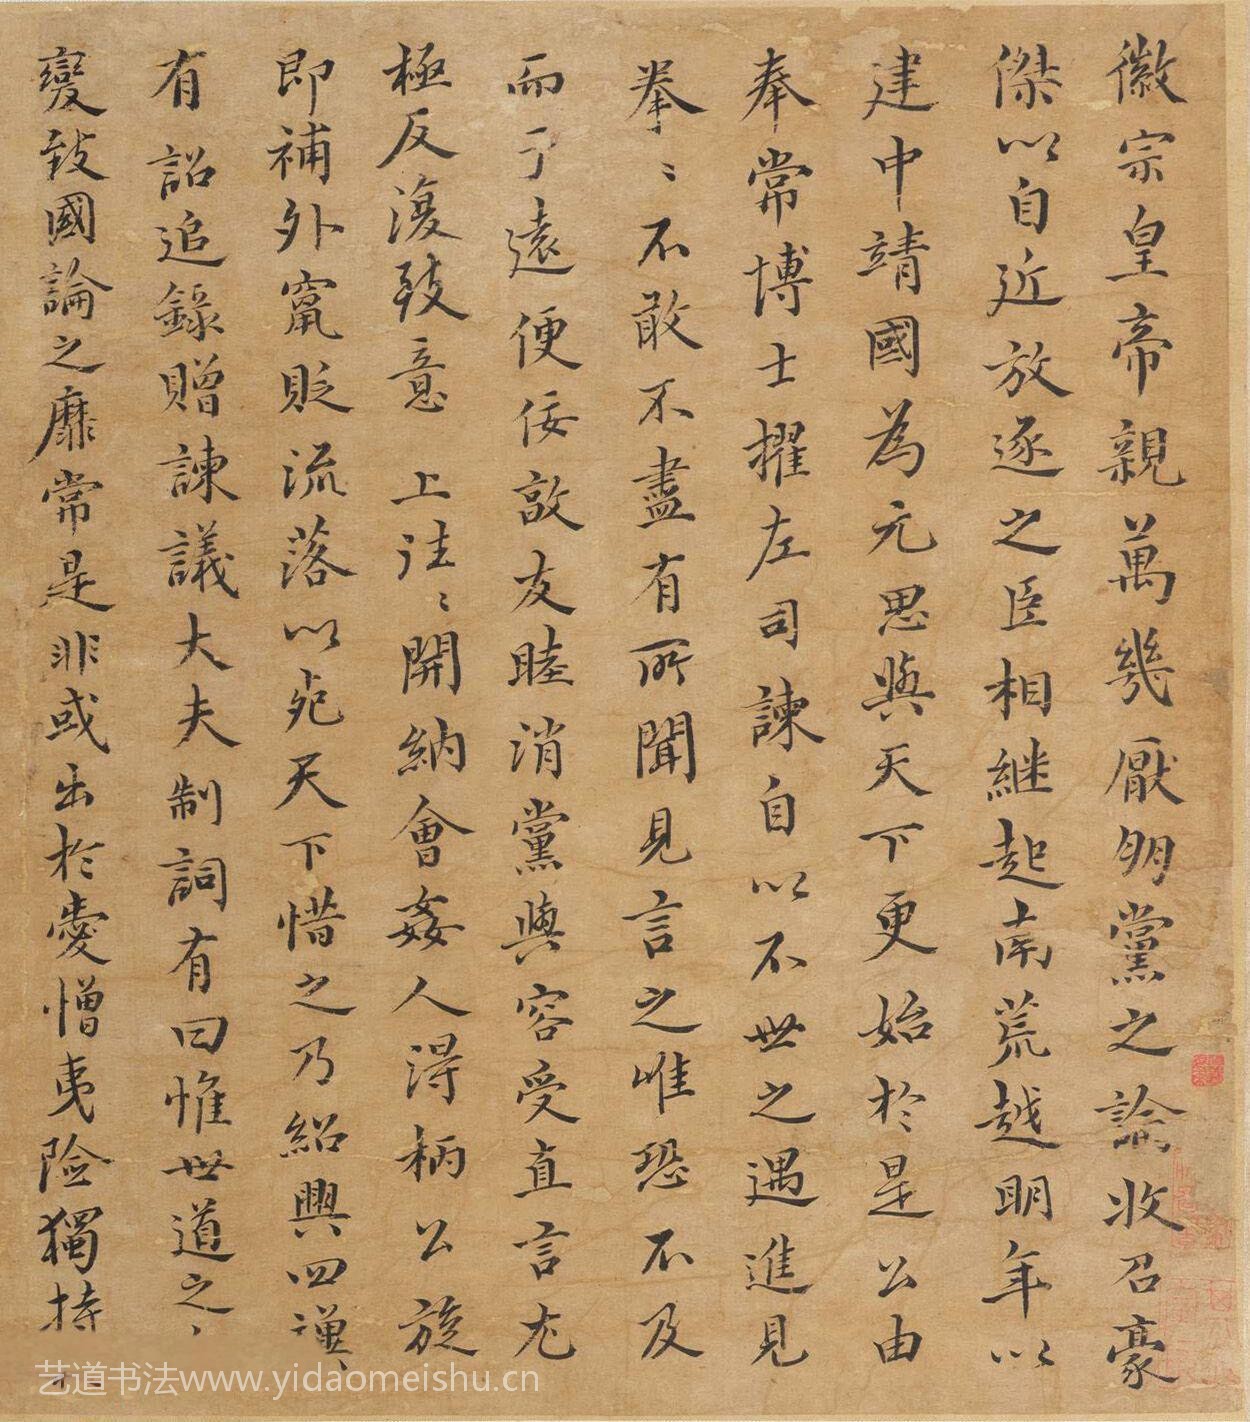 徽宗皇帝親萬幾厭朋黨之論收召豪
傑以自近放逐之臣相継起南荒越明年以
建中靖國為元思與天下更始於是公由
奉常博士擢左司諫自以不世之遇進見
拳〻不敢不盡有所聞見言之唯恐不及
而于遠便佞敦友睦消黨與容受直言尤
極反復致意 上注〻開納會姦人得柄公旋
即補外竄貶流落以死天下惜之乃紹興四禩
有詔追錄贈諫議大夫制詞有曰惟世道之
變致國論之靡常是非或出於愛憎夷險獨持
艺道书法www.yidaomeishu.cn